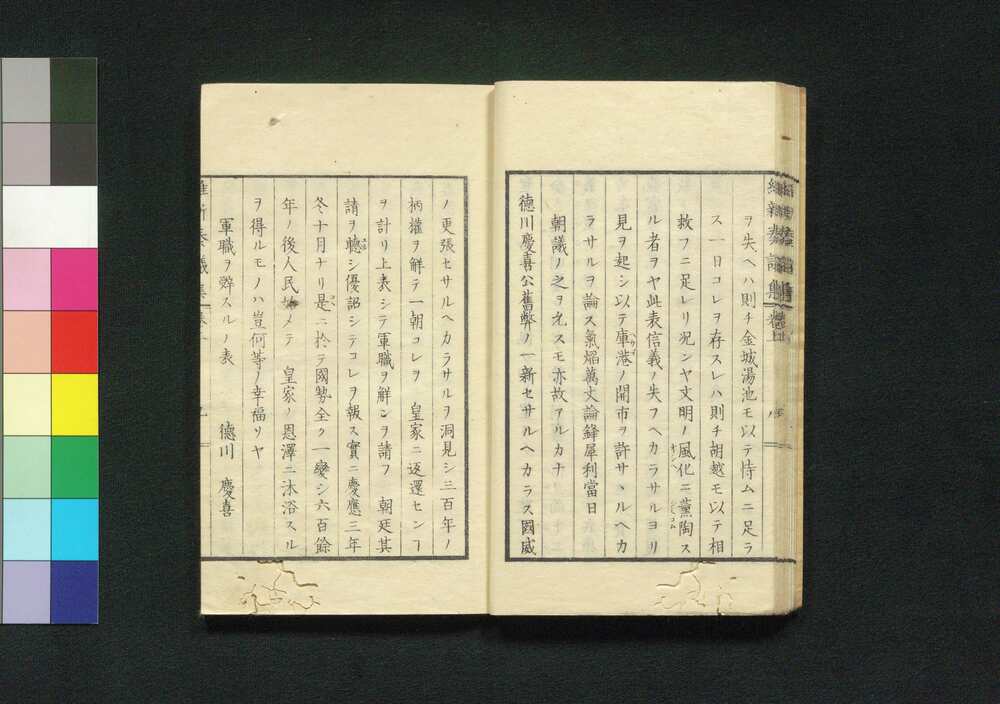 ヲ失ヘハ則チ金城湯池モ以テ恃ムニ足ラ
ス一日コレヲ存スレハ則チ胡越モ以テ相
救フニ足レリ况ンヤ文明ノ風化ニ薰陶ス
ル者ヲヤ此表信義ノ失フヘカラサルヨリ
見ヲ起シ以テ庫港ノ開市ヲ許サヽルヘカ
ラサルヲ論ス氣焰萬丈論鋒犀利當日
朝議ノ之ヲ允スモ亦故アルカナ
德川慶喜公舊弊ノ一新セサルヘカラス國威
ノ更張セサルヘカラサルヲ洞見シ三百年ノ
柄權ヲ解テ一朝コレヲ 皇家ニ返還センヿ
ヲ計リ上表シテ軍職ヲ解ンヲ請フ 朝廷其
請ヲ聽シ優詔シテコレヲ報ス實ニ慶應三年
冬十月ナリ是ニ於テ國勢全ク一變シ六百餘
年ノ後人民始メテ 皇家ノ恩澤ニ沐浴スル
ヲ得ルモノハ豈何等ノ幸福ソヤ
軍職ヲ辤スルノ表 德川 慶喜